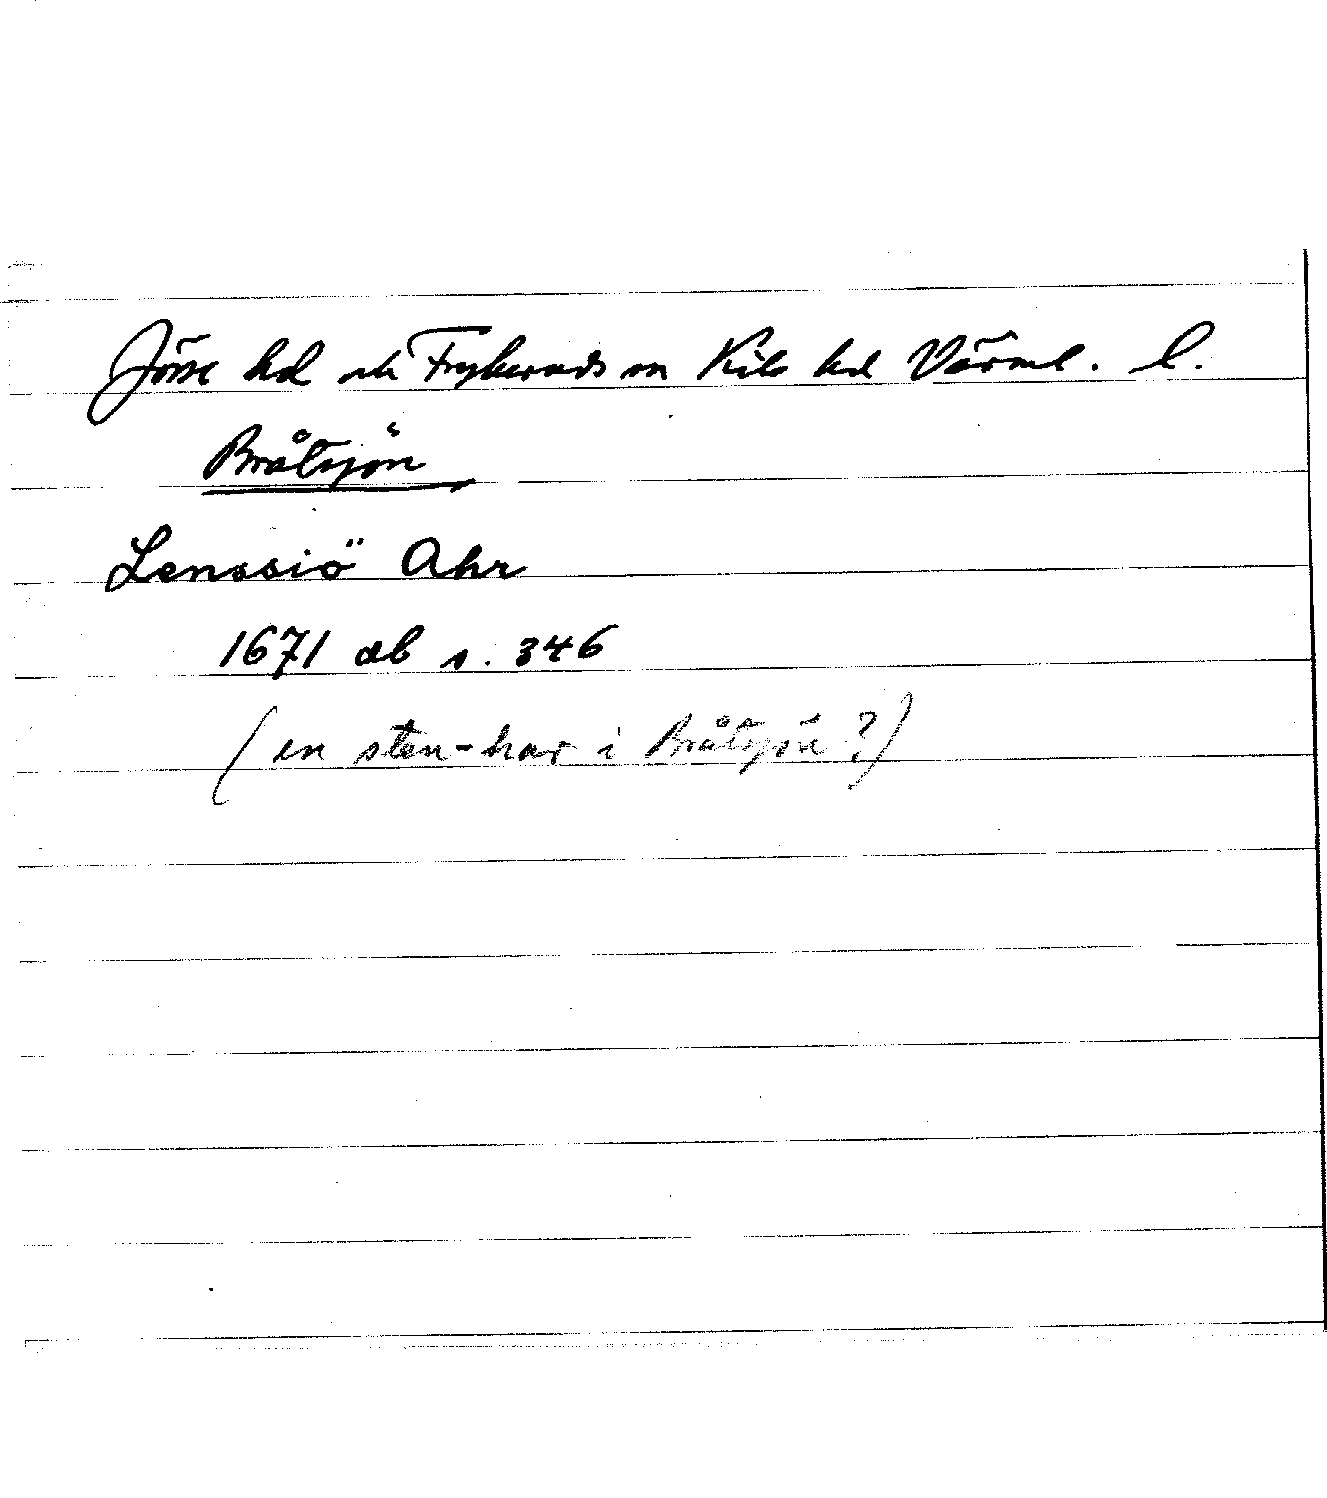 Jösse hd och Frykeruds sn Kils hd Värml. l.
Bråtsjön
Lenssiö Ahr
1671 ab s. 346
(en sten-har i Bråtsjön?)